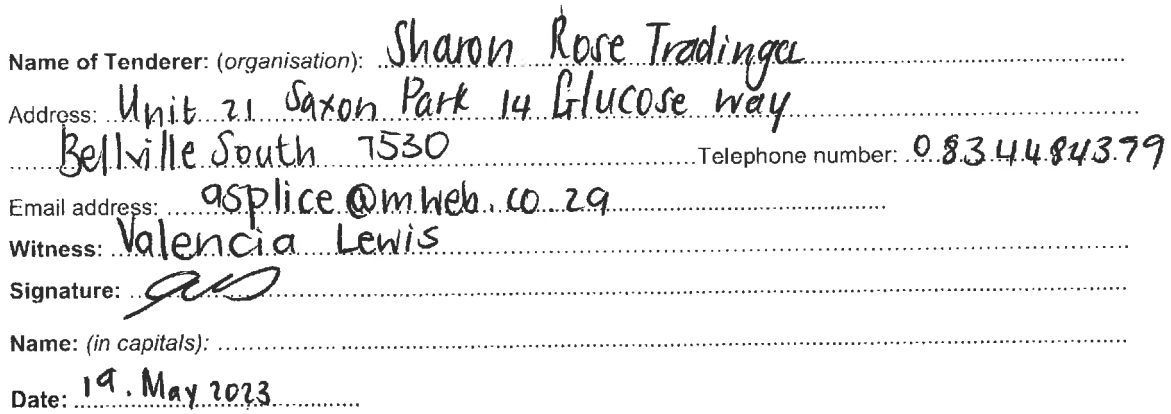 Name of Tenderer: (organisation): Sharon Rose Trading cc
Address: Unit 21 Saxon Park 14 Glucose way
Bellville South 7530 Telephone number: 0834484379
Email address: asplice@mweb.co.za
Witness: Valencia Lewis
Signature:
Name: (in capitals):
Date: 19. May 2023